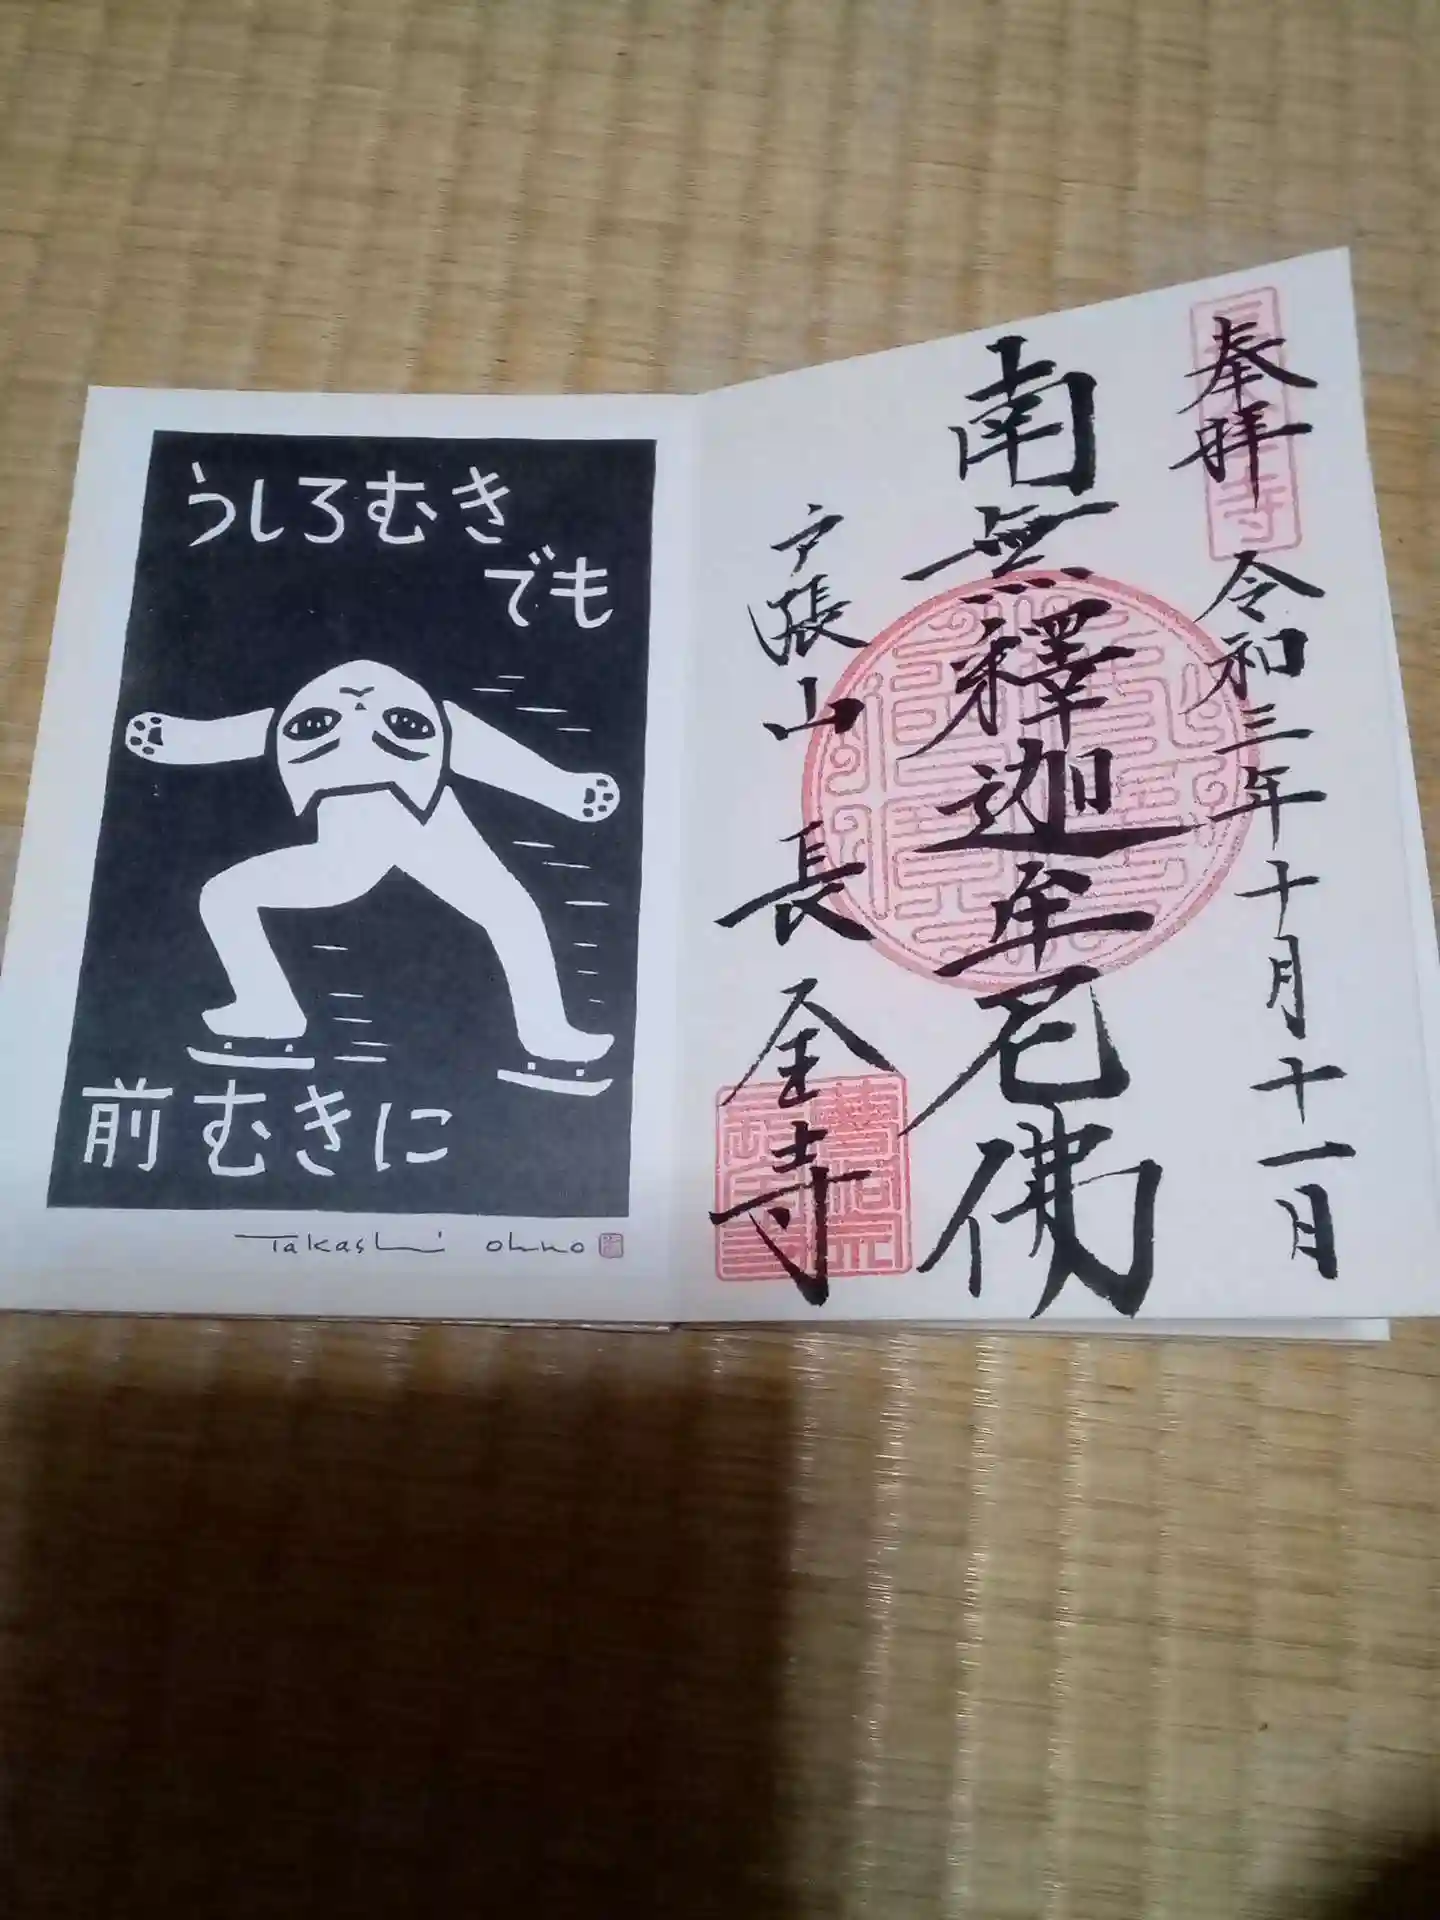 うしろむき
でも
前むきに
Takashi ohno
奉拝
令和三年十月十一日
南無釋迦牟尼佛
戸張山
長全寺